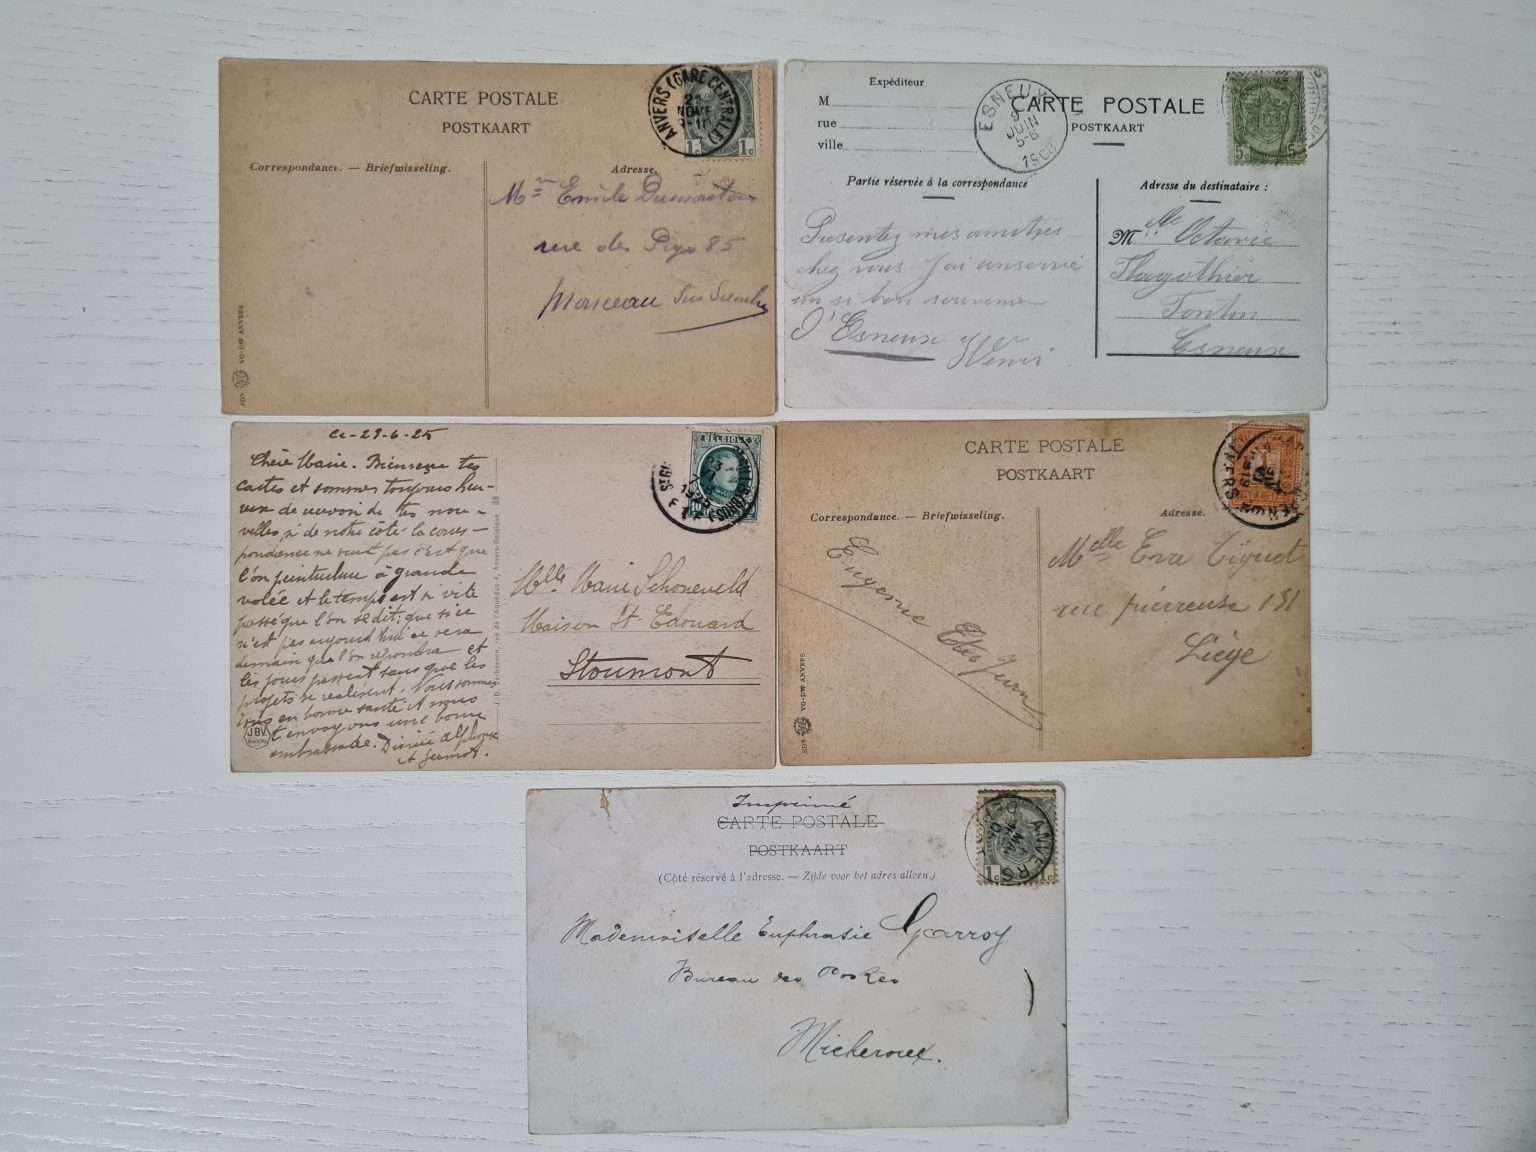 CARTE POSTALE
POSTKAART
ANVERS (GARE CENTRALE)
1c 1c
Correspondance. — Briefwisseling.
Adresse.
Mr Emile
rue des 85
Monceau Sur Sambre
VO-DW ANVERS
Expéditeur
M
rue
ville
ESNEUX
9
JUIN
5-6
1908
CARTE POSTALE
POSTKAART
5c 5c
Partie réservée à la correspondance
Adresse du destinataire :
Présentez mes amitiés
chez vous J'ai conservé
un si bon souvenir
d'Esneux
Henri
Mlle Octavie
Flagothier
Fontin
Esneux
29-6-25
Chère Marie. Bien reçu tes
cartes et sommes toujours heu-
reux de recevoir de tes nou-
velles, si de notre côté la corres-
pondance ne va pas c'est que
l'on peinturlure à grande
volée et le temps est si vite
passé que l'on se dit; que si ce
n'est pas aujourd'hui ce sera
demain que l'on répondra et
les jours passent sans que les
projets se réalisent. Nous sommes
tous en bonne santé et nous
t'envoyons une bonne
embrassade. Désirée Alphonse
et Germot.
JBV
BELGIQUE
1925
10
J.B. Verhoeven, rue de l'Aqueduc 4, Anvers-Belgique
Mlle Marie Schoneveld
Maison St Edouard
Stoumont
CARTE POSTALE
POSTKAART
ANTWERPEN
Correspondance. — Briefwisseling.
Adresse.
Eugenie
Melle Eva Tiquet
rue pierreuse 131
Liège
VO-DW ANVERS
Imprimé
CARTE POSTALE
POSTKAART
(Côté réservé à l'adresse. — Zijde voor het adres alleen.)
ANVERS
1c 1c
Mademoiselle Euphrasie Garroy
Bureau des Postes
Micheroux.